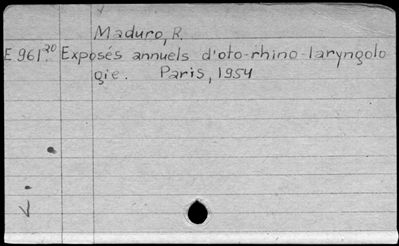 Maduro, R.
E 961.20 Exposés annuels d'oto-rhino-laryngolo
gie. Paris, 1954